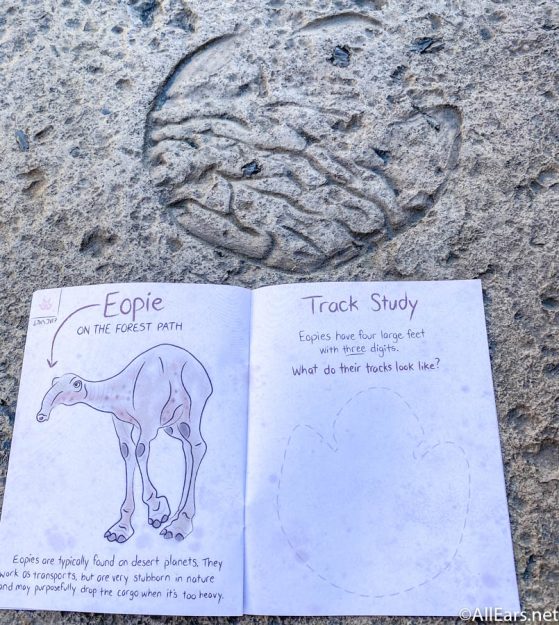 Eopie
ON THE FOREST PATH
Eopies are typically found on desert planets. They
work as transports, but are very stubborn in nature
and may purposefully drop the cargo when it's too heavy.
Track Study
Eopies have four large feet
with three digits.
What do their tracks look like?
©AllEars.net